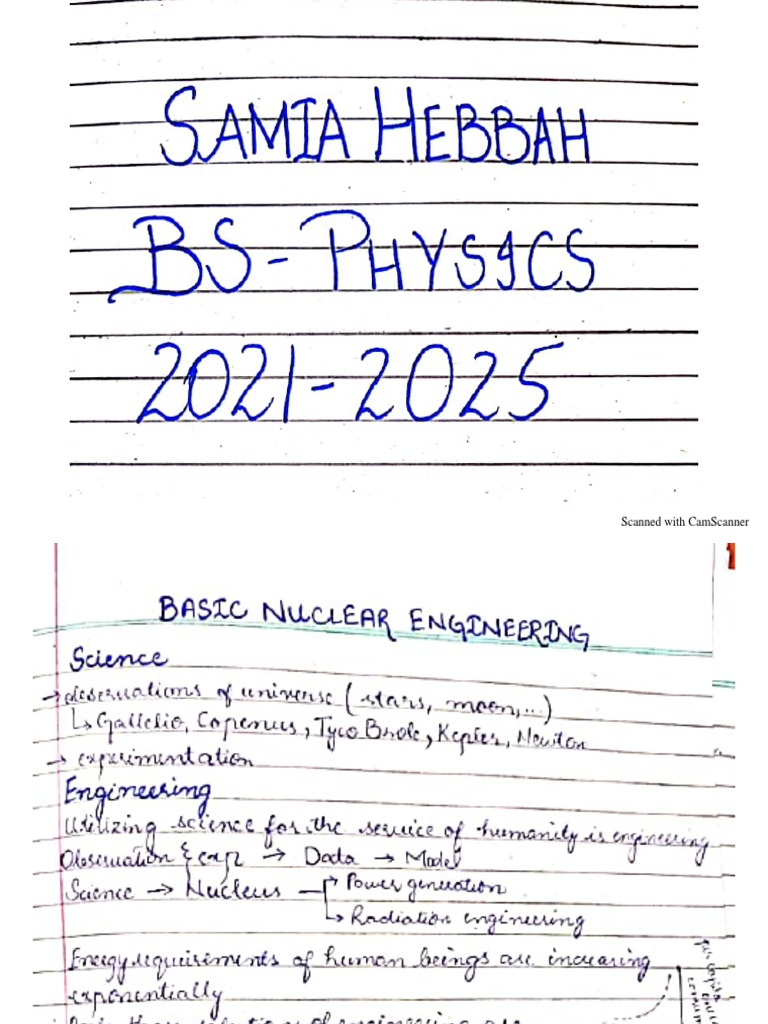 SAMIA HEBBAH
BS-PHYSICS
2021-2025
Scanned with CamScanner
BASIC NUCLEAR ENGINEERING
Science
→ observations of universe (stars, moon,...)
↳ Gallelio, Copernus, Tyco Brole, Kepler, Newton
→ experimentation
Engineering
Utilizing science for the service of humanity is engineering
Observation & exp → Data → Model
Science → Nucleus → Power generation
↳ Radiation engineering
Energy requirements of human beings are increasing
exponentially